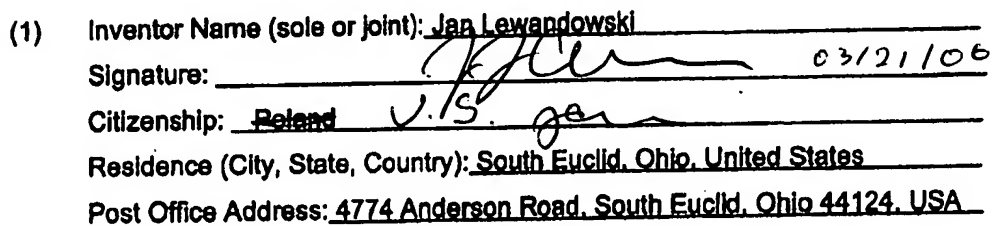 (1) Inventor Name (sole or joint): Jan Lewandowski
Signature: 03/21/06
Citizenship: Poland U.S.
Residence (City, State, Country): South Euclid, Ohio, United States
Post Office Address: 4774 Anderson Road, South Euclid, Ohio 44124, USA